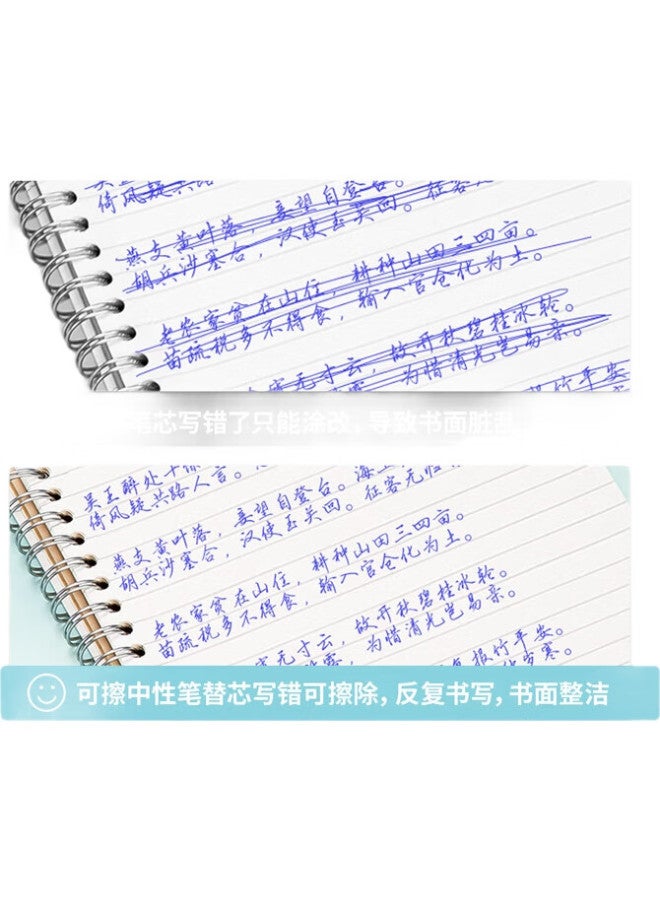 倚风疑共路
燕支黄叶落，妾望自登台。
胡兵沙塞合，汉使玉关回。征客
老农家贫在山住，耕种山田三四亩。
苗疏税多不得食，输入官仓化为土。
寒无寸云，故开秋碧桂冰轮。
为惜清光岂易亲。
报竹平安
笔芯写错了只能涂改，导致书面脏乱
吴王醉处十
倚风疑共路人言。
燕支黄叶落，妾望自登台。海上
胡兵沙塞合，汉使玉关回。征客无归
老农家贫在山住，耕种山田三四亩。
苗疏税多不得食，输入官仓化为土。
寒无寸云，故开秋碧桂冰轮。
为惜清光岂易亲。
报竹平安。
岁寒。
可擦中性笔替芯写错可擦除，反复书写，书面整洁